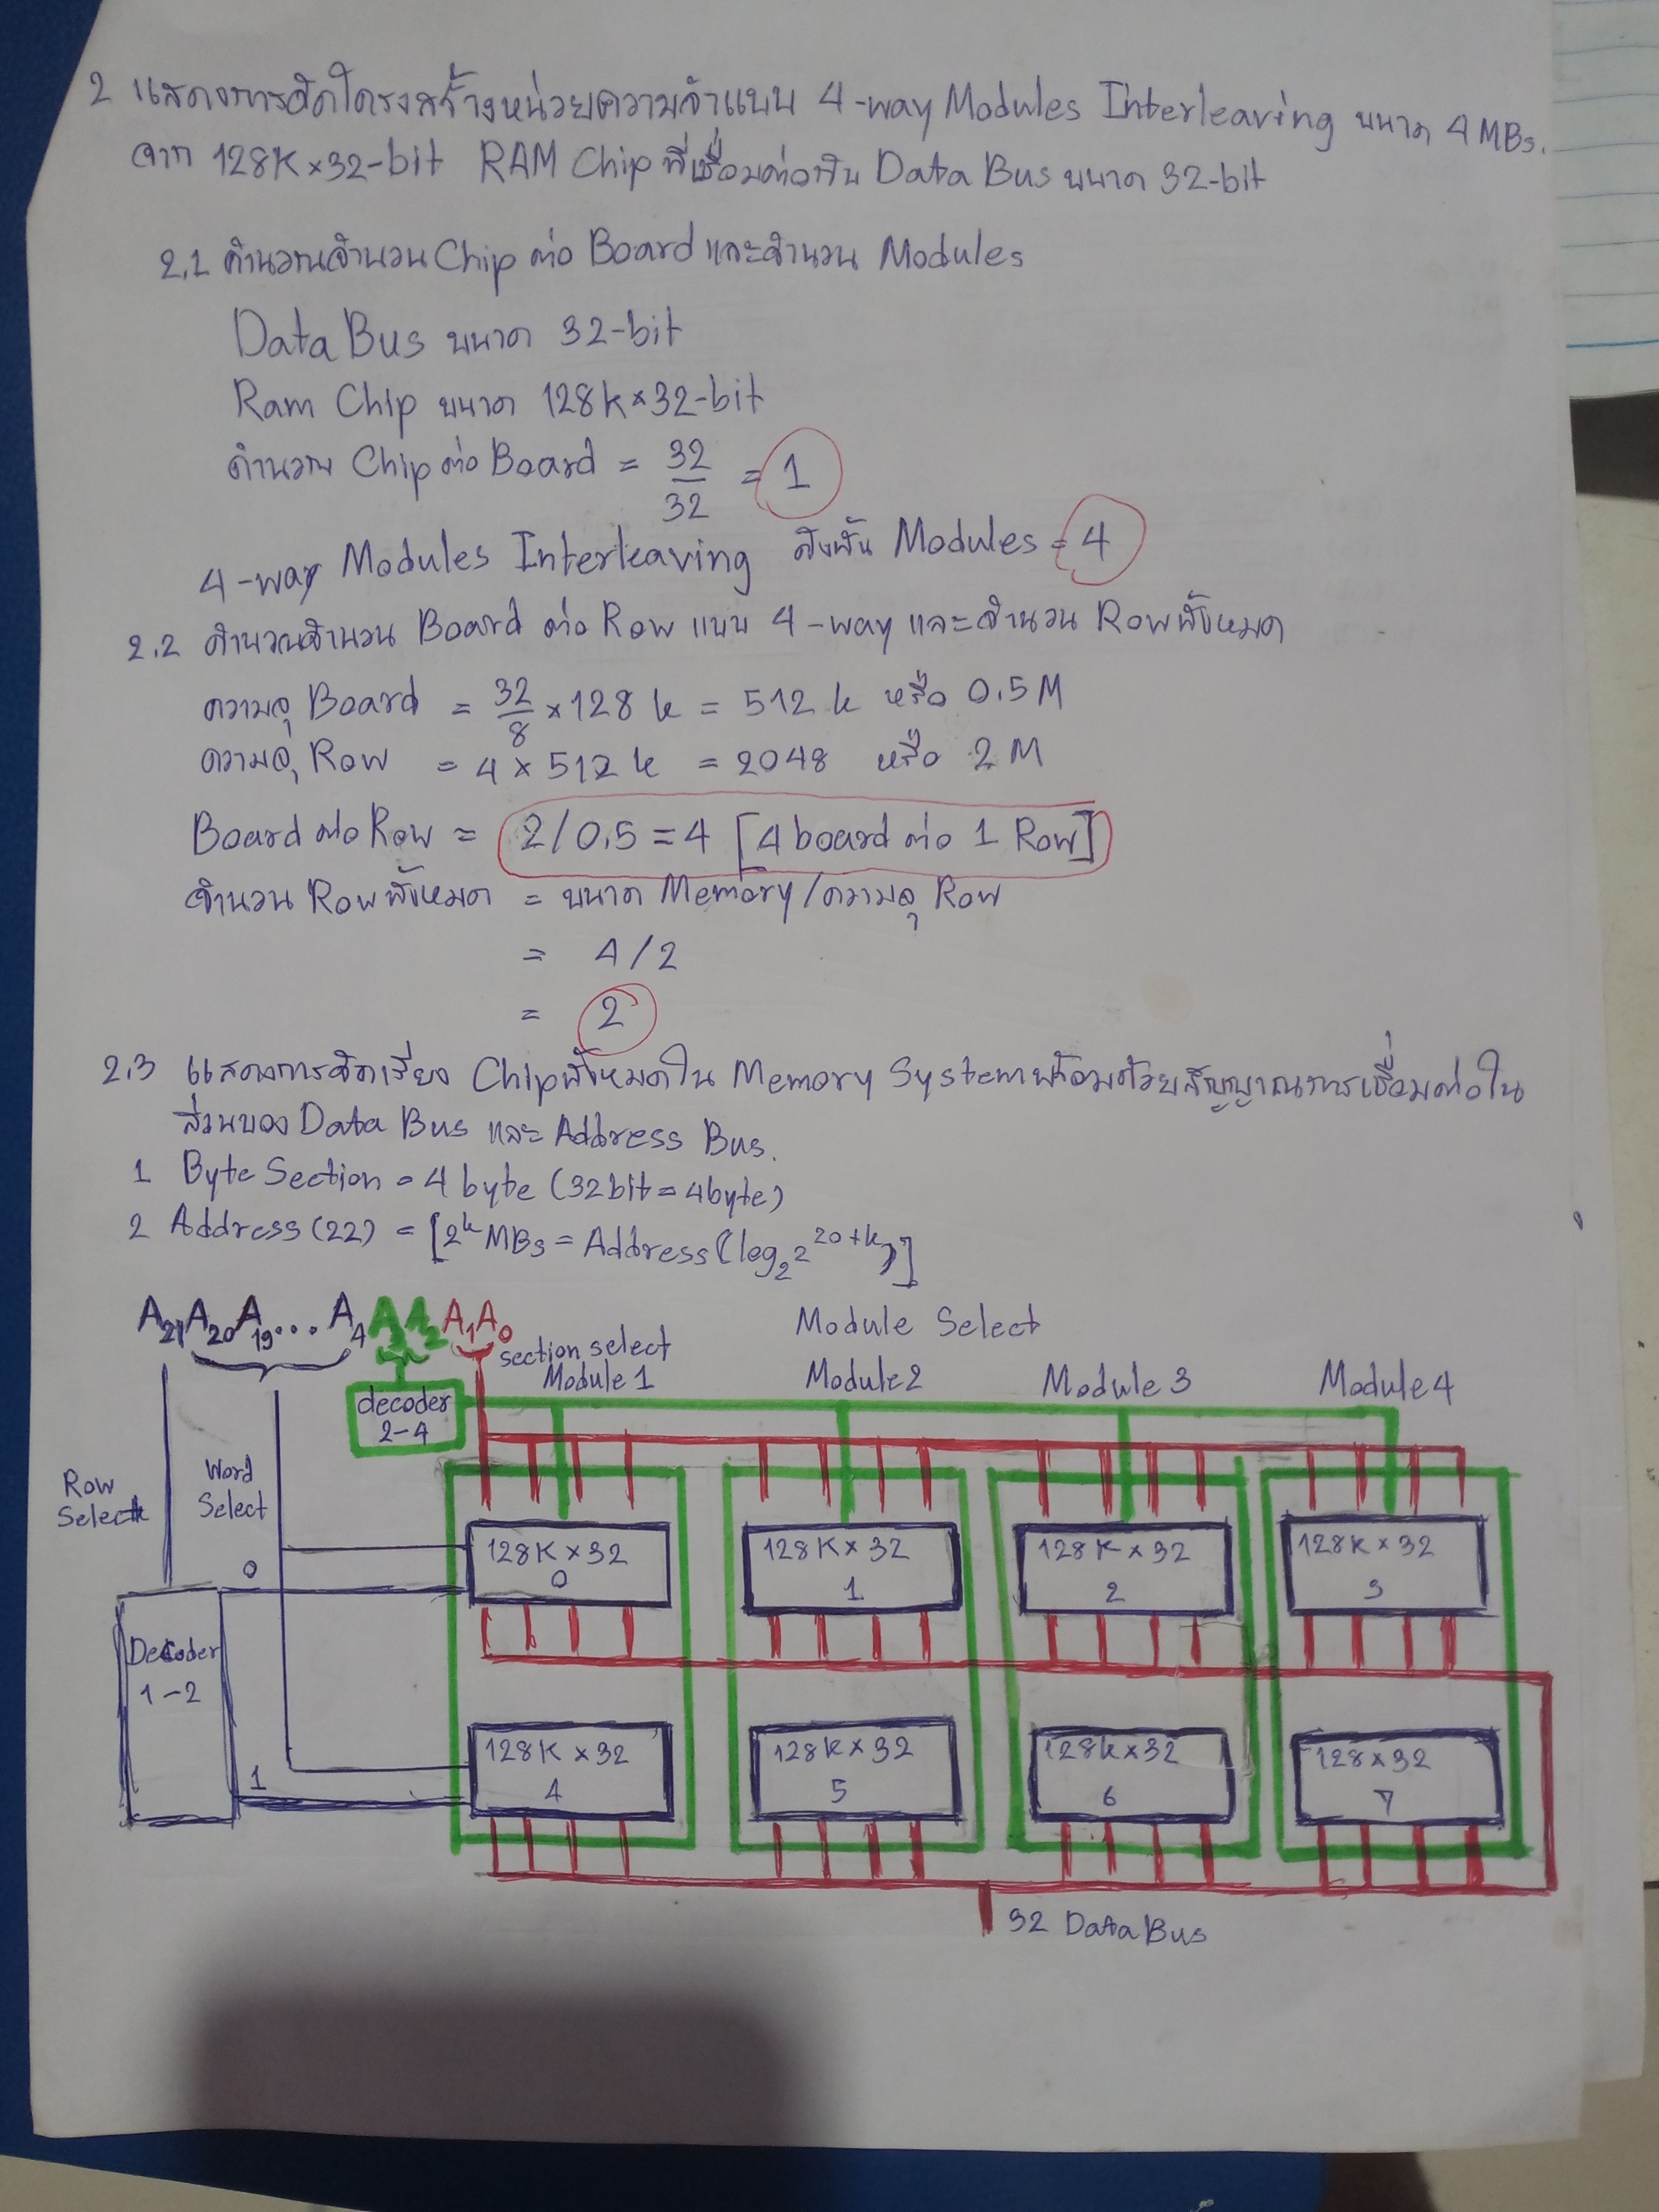 2 แสดงการจัดโครงสร้างหน่วยความจำแบบ 4-way Modules Interleaving ขนาด 4 MBs.
จาก 128K×32-bit RAM Chip ที่เชื่อมต่อกับ Data Bus ขนาด 32-bit
2.1 คำนวณจำนวน Chip ต่อ Board และจำนวน Modules
Data Bus ขนาด 32-bit
Ram Chip ขนาด 128k×32-bit
คำนวณ Chip ต่อ Board = 32/32 = 1
4-way Modules Interleaving ดังนั้น Modules = 4
2.2 คำนวณจำนวน Board ต่อ Row แบบ 4-way และจำนวน Row ทั้งหมด
ความจุ Board = 32/8 × 128 k = 512 k หรือ 0.5 M
ความจุ Row = 4 × 512 k = 2048 หรือ 2 M
Board ต่อ Row = 2/0.5 = 4 [4 board ต่อ 1 Row]
จำนวน Row ทั้งหมด = ขนาด Memory/ความจุ Row
= 4/2
= 2
2.3 แสดงการจัดเรียง Chip ทั้งหมดใน Memory System พร้อมด้วยสัญญาณการเชื่อมต่อใน
ส่วนของ Data Bus และ Address Bus.
1 Byte Section = 4 byte (32bit = 4byte)
2 Address (22) = [2^k MBs = Address (log₂ 2^20+k)]
A21 A20 A19 ... A4 A3 A2 A1 A0
Module Select
section select
Module 1 Module 2 Module 3 Module 4
decoder
2-4
Row
Select
Word
Select
0
128K × 32
0
128K × 32
1
128K × 32
2
128K × 32
3
Decoder
1-2
1
128K × 32
4
128K × 32
5
128k×32
6
128×32
7
32 Data Bus